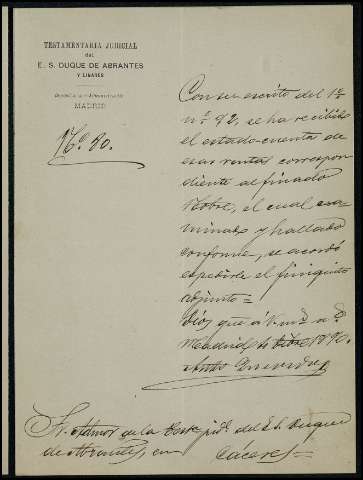 TESTAMENTARIA JUDICIAL
del
E. S. DUQUE DE ABRANTES
Y LINARES
MADRID
N.º 80.
Con su escrito del 1º
nº 82, se ha recibido
el estado-cuenta de
esas rentas correspon
diente al finado
Nobre, el cual exa
minado y hallado
conforme, se acordó
expedirle el finiquito
adjunto=
Dios gue á V. mº aº
Madrid 1890.
Sr. Admor de la del E. S. Duque
de Abrantes, en Cáceres=